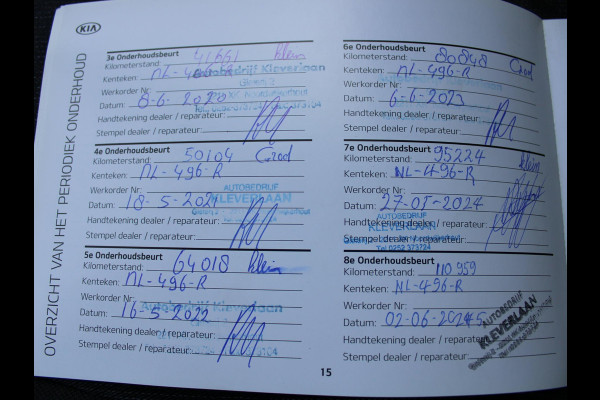 KIA
OVERZICHT VAN HET PERIODIEK ONDERHOUD
3e Onderhoudsbeurt
Kilometerstand: 41661 klein
Kenteken: NL-496-R
Werkorder Nr:
Datum: 8-6-2020
Handtekening dealer / reparateur:
Stempel dealer / reparateur:
Autobedrijf Kleverlaan
4e Onderhoudsbeurt
Kilometerstand: 50104 Groot
Kenteken: NL-496-R
Werkorder Nr:
Datum: 18-5-2021
Handtekening dealer / reparateur:
Stempel dealer / reparateur:
AUTOBEDRIJF
KLEVERLAAN
5e Onderhoudsbeurt
Kilometerstand: 64018 klein
Kenteken: NL-496-R
Werkorder Nr:
Datum: 16-5-2022
Handtekening dealer / reparateur:
Stempel dealer / reparateur:
Autobedrijf Kleverlaan
6e Onderhoudsbeurt
Kilometerstand: 80848 Groot
Kenteken: NL-496-R
Werkorder Nr:
Datum: 6-6-2023
Handtekening dealer / reparateur:
Stempel dealer / reparateur:
7e Onderhoudsbeurt
Kilometerstand: 95224 klein
Kenteken: NL-496-R
Werkorder Nr:
Datum: 27-05-2024
Handtekening dealer / reparateur:
Stempel dealer / reparateur:
AUTOBEDRIJF
KLEVERLAAN
Tel. 0252 373724
8e Onderhoudsbeurt
Kilometerstand: 110959
Kenteken: NL-496-R
Werkorder Nr:
Datum: 02-06-2025
Handtekening dealer / reparateur:
Stempel dealer / reparateur:
AUTOBEDRIJF
KLEVERLAAN
15